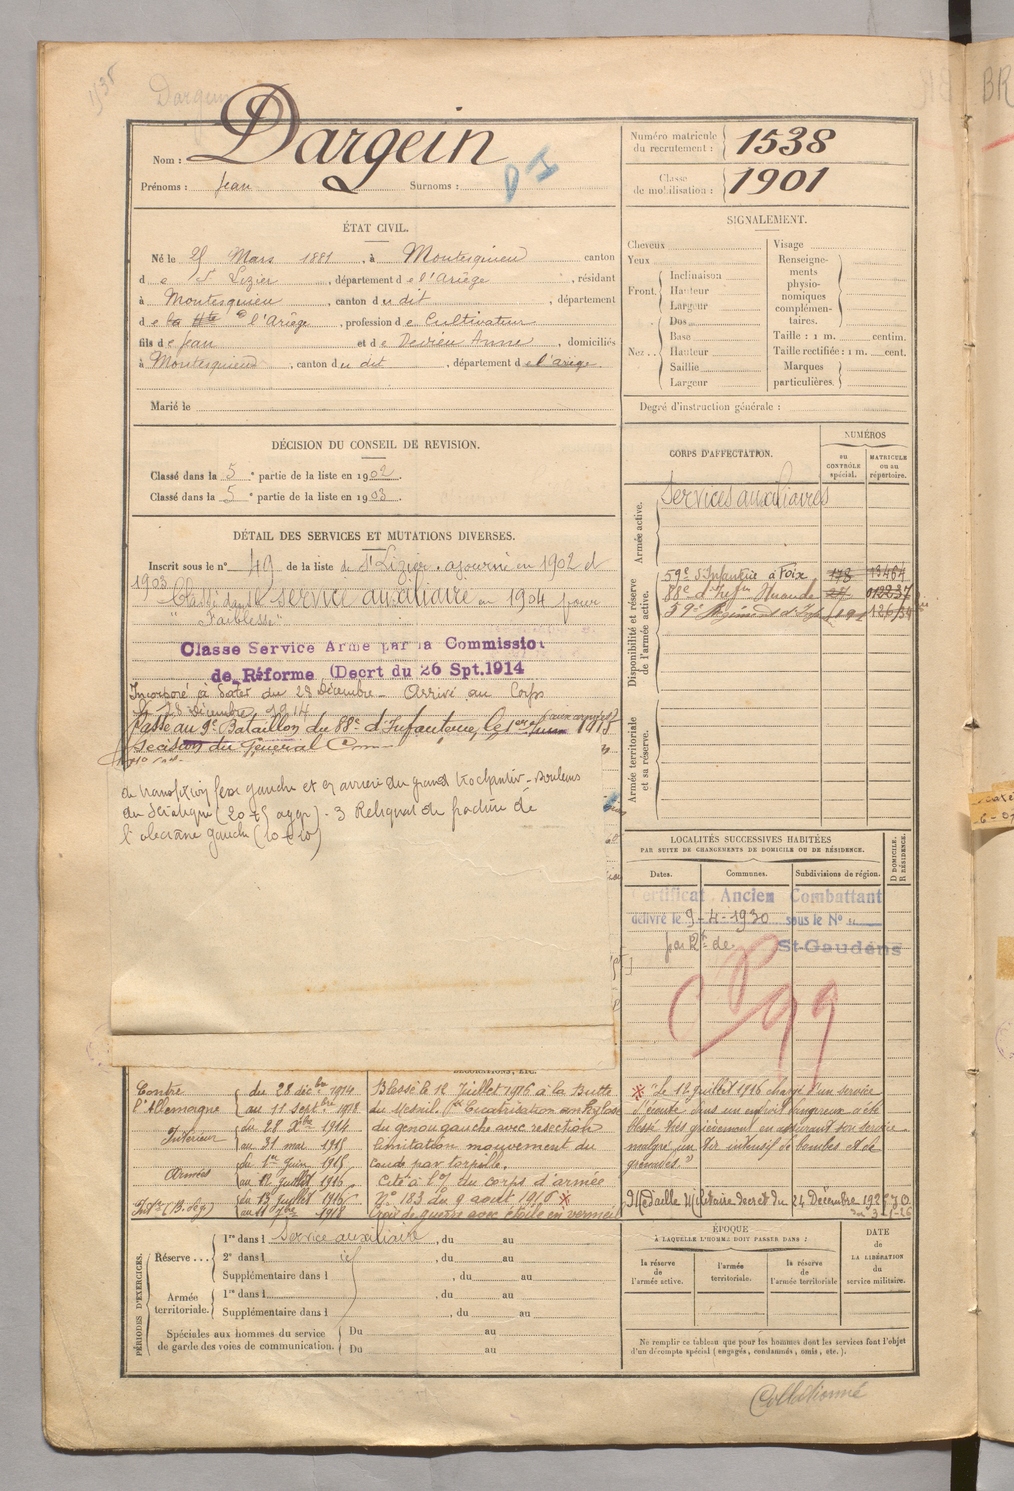 Dargein
Nom : Dargein
Prénoms : Jean Surnoms :
Numéro matricule du recrutement : 1538
Classe de mobilisation : 1901
ÉTAT CIVIL.
Né le 25 Mars 1881, à Montesquieu canton
de St Lizier, département de l'Ariège, résidant
à Montesquieu, canton du dit, département
de la Hte l'Ariège, profession de Cultivateur
fils de Jean et de Devieu Anne, domiciliés
à Montesquieu, canton du dit, département de l'Ariège.
Marié le
SIGNALEMENT.
Cheveux
Yeux
Front. Inclinaison
Hauteur
Largeur
Nez.. Dos
Base
Hauteur
Saillie
Largeur
Visage
Renseignements physionomiques complémentaires.
Taille : 1 m. centim.
Taille rectifiée : 1 m. cent.
Marques particulières.
Degré d'instruction générale :
DÉCISION DU CONSEIL DE REVISION.
Classé dans la 5e partie de la liste en 1902.
Classé dans la 5e partie de la liste en 1903.
DÉTAIL DES SERVICES ET MUTATIONS DIVERSES.
Inscrit sous le n° 49 de la liste de St Lizier. ajourné en 1902 et
1903
Classé dans le service auxiliaire en 1904 pour
"Faiblesse"
Classe Service Arme par la Commission
de Réforme (Decrt du 26 Spt.1914
Incorporé à dater du 28 Décembre. Arrivé au Corps
le 28 Décembre 1914
Passé au 9e Bataillon du 88e d'Infanterie, le 1er juin 1915 (aux armées)
Décision du Général
de transfixion fesse gauche et en arrière du grand trochanter - Douleurs
du Sciatique (20 + 5 aggr). 3 Reliquat de fracture de
l'olécrane gauche (10 + 10)
CORPS D'AFFECTATION.
NUMÉROS
au CONTRÔLE spécial.
MATRICULE ou au répertoire.
Armée active.
Services auxiliaires
Disponibilité et réserve de l'armée active.
59e d'Infanterie à Foix 178 13464
88e d'Infrie Mirande 012237
59e Régiment d'Infrie 191
Armée territoriale et sa réserve.
LOCALITÉS SUCCESSIVES HABITÉES
PAR SUITE DE CHANGEMENTS DE DOMICILE OU DE RÉSIDENCE.
Dates. Communes. Subdivisions de région. D DOMICILE. R RÉSIDENCE.
Certificat Ancien Combattant
délivré le 9-4-1930 sous le N°
par Rt de St-Gaudens
Contre l'Allemagne du 28 décbre 1914
au 11 Septbre 1918
Intérieur du 28 Xbre 1914
au 31 mai 1915
Armées du 1er Juin 1915
au 12 Juillet 1916
Intr (B. Gé) du 13 Juillet 1916
au 11 7bre 1918
Blessé le 12 Juillet 1916 à la Butte
du Mesnil. Cicatrisation
du genou gauche avec resection
limitation mouvement du
coude par torpille.
Cité à l'O/ du corps d'armée
N° 183 du 9 aout 1916 *
Croix de guerre avec étoile en vermeil
* "Le 12 juillet 1916 chargé d'un service
d'écoute dans un endroit dangereux a été
blessé très grièvement en assurant son service
malgré un tir intensif de bombes et de
grenades."
Médaille Militaire decret du 24 Décembre 1925
PÉRIODES D'EXERCICES.
Réserve... 1re dans l Service auxiliaire, du au
2e dans l id, du au
Supplémentaire dans l , du au
Armée territoriale. 1re dans l , du au
Supplémentaire dans l , du au
Spéciales aux hommes du service de garde des voies de communication. Du au
Du au
ÉPOQUE
À LAQUELLE L'HOMME DOIT PASSER DANS :
la réserve de l'armée active.
l'armée territoriale.
la réserve de l'armée territoriale
DATE de LA LIBÉRATION du service militaire.
Ne remplir ce tableau que pour les hommes dont les services font l'objet
d'un décompte spécial (engagés, condamnés, omis, etc.).
Collationné